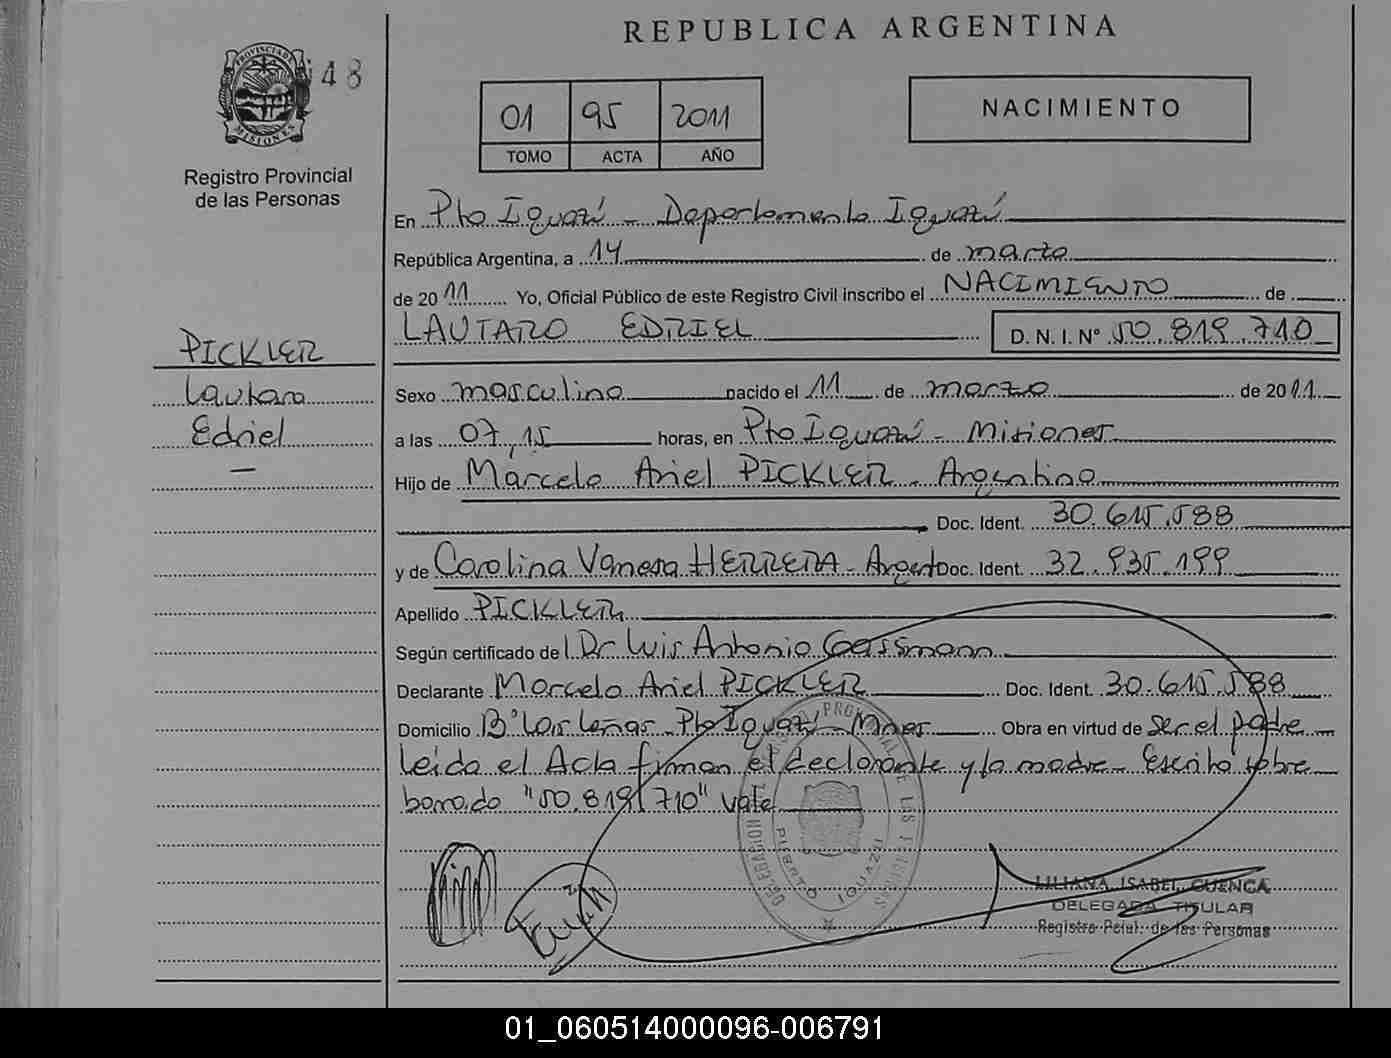 REPUBLICA ARGENTINA
PROVINCIA DE MISIONES
48
Registro Provincial
de las Personas
01 95 2011
TOMO ACTA AÑO
NACIMIENTO
En Pto Iguazú - Departamento Iguazú
República Argentina, a 14 de marzo
de 2011 Yo, Oficial Público de este Registro Civil inscribo el NACIMIENTO de
LAUTARO EDRIEL D. N. I. Nº 50.819.710
PICKLER
Lautaro
Edriel
Sexo masculino nacido el 11 de marzo de 2011
a las 07,15 horas, en Pto Iguazú - Misiones
Hijo de Marcelo Ariel PICKLER - Argentino
Doc. Ident. 30.615.588
y de Carolina Vanesa HERRERA - Argent Doc. Ident. 32.935.199
Apellido PICKLER
Según certificado de Dr Luis Antonio Gassmann
Declarante Marcelo Ariel PICKLER Doc. Ident. 30.615.588
Domicilio Bº Las Leñas - Pto Iguazú - Mnes Obra en virtud de ser el padre
Leida el Acta firman el declarante y la madre - Escrito sobre
borrado "50.819.710" vale
DELEGACION DEL REGISTRO PROVINCIAL DE LAS PERSONAS
PUERTO IGUAZU
LILIANA ISABEL CUENCA
DELEGADA TITULAR
Registro Pcial. de las Personas
01_060514000096-006791